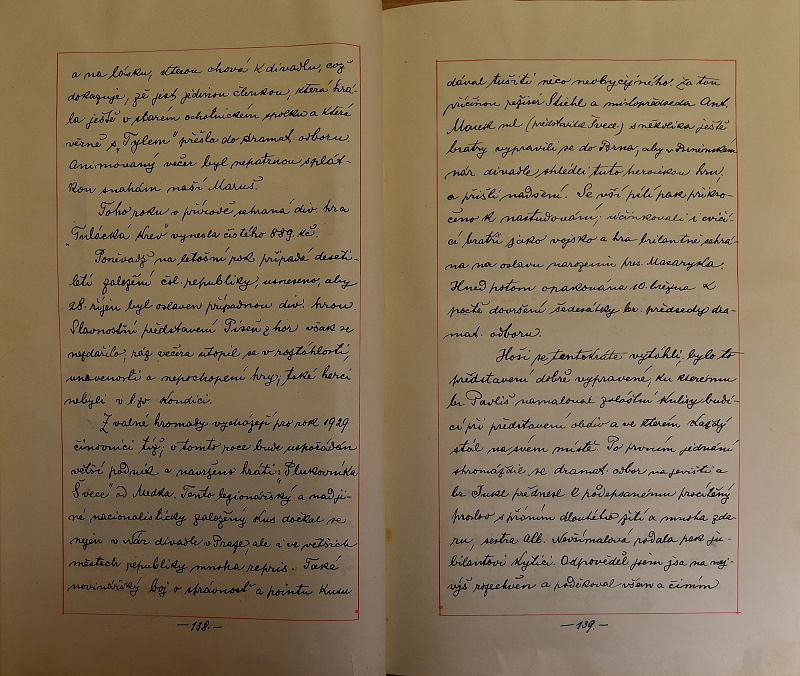 a na lásku, kterou chová k divadlu, což
dokazuje, že jest jedinou členkou, která hrá-
la ještě v starém ochotnickém spolku a která
věrně s „Tylem" přešla do dramat. odboru.
Animovaný večer byl nepatrnou splát-
kou snahám naší Maruš.
Toho roku v přírodě sehraná div. hra
„Tulácká krev" vynesla čistého 889. kč.
Poněvadž na letošní rok připadá deseti-
letí založení čsl. republiky, usneseno, aby
28. říjen byl oslaven případnou div. hrou.
Slavnostní představení Píseň z hor však se
nezdařilo, ráz večera utopil se v roztáhlosti,
unavenosti a nepochopení hry; také herci
nebyli v t. zv. kondici.
Z valné hromady vycházejí pro rok 1929
činovníci tíž; v tomto roce bude uspořádán
větší podnik a navrženo hráti: „Plukovníka
Švece" od Medka. Tento legionářský a nadji-
né nacionalisticky založený kus dočkal se
nejen v Nár. divadle v Praze, ale i ve větších
městech republiky mnoha repris. Také
novinářský boj o správnost a pointu kusu
—138.—
dával tušiti něco neobyčejného. Za tou
příčinou režiser Stiehl a místopředseda Ant.
Marek ml. (představitel Švece.) s několika ještě
bratry vypravili se do Brna, aby v Brněnském
nár. divadle shlédli tuto heroickou hru,
a přišli nadšeni. Se vší pílí pak přikro-
čeno k nastudování; účinkovali i cvičí-
cí bratři jako vojsko a hra briantně sehrá-
na na oslavu narozenin pres. Masaryka.
Hned potom opakována 10. března k
poctě dovršení šedesátky br. předsedy dra-
mat. odboru.
Hoši se tentokráte vytáhli, bylo to
představení dobře vypravené, ku kterému
br. Pavliš namaloval zvláštní kulisy budí-
cí při představení obdiv a ve kterém každý
stál na svém místě. Po prvním jednání
shromáždil se dramat. odbor na jevišti a
br. Jukl přednesl k podepsanému procítěný
proslov s přáním dlouhého žití a mnoha zda-
ru, sestra Alb. Navrátilová podala pak ju-
bilantovi kytici. Odpověděl jsem jsa na nej-
výš rozechvěn a poděkoval všem a činím
—139.—